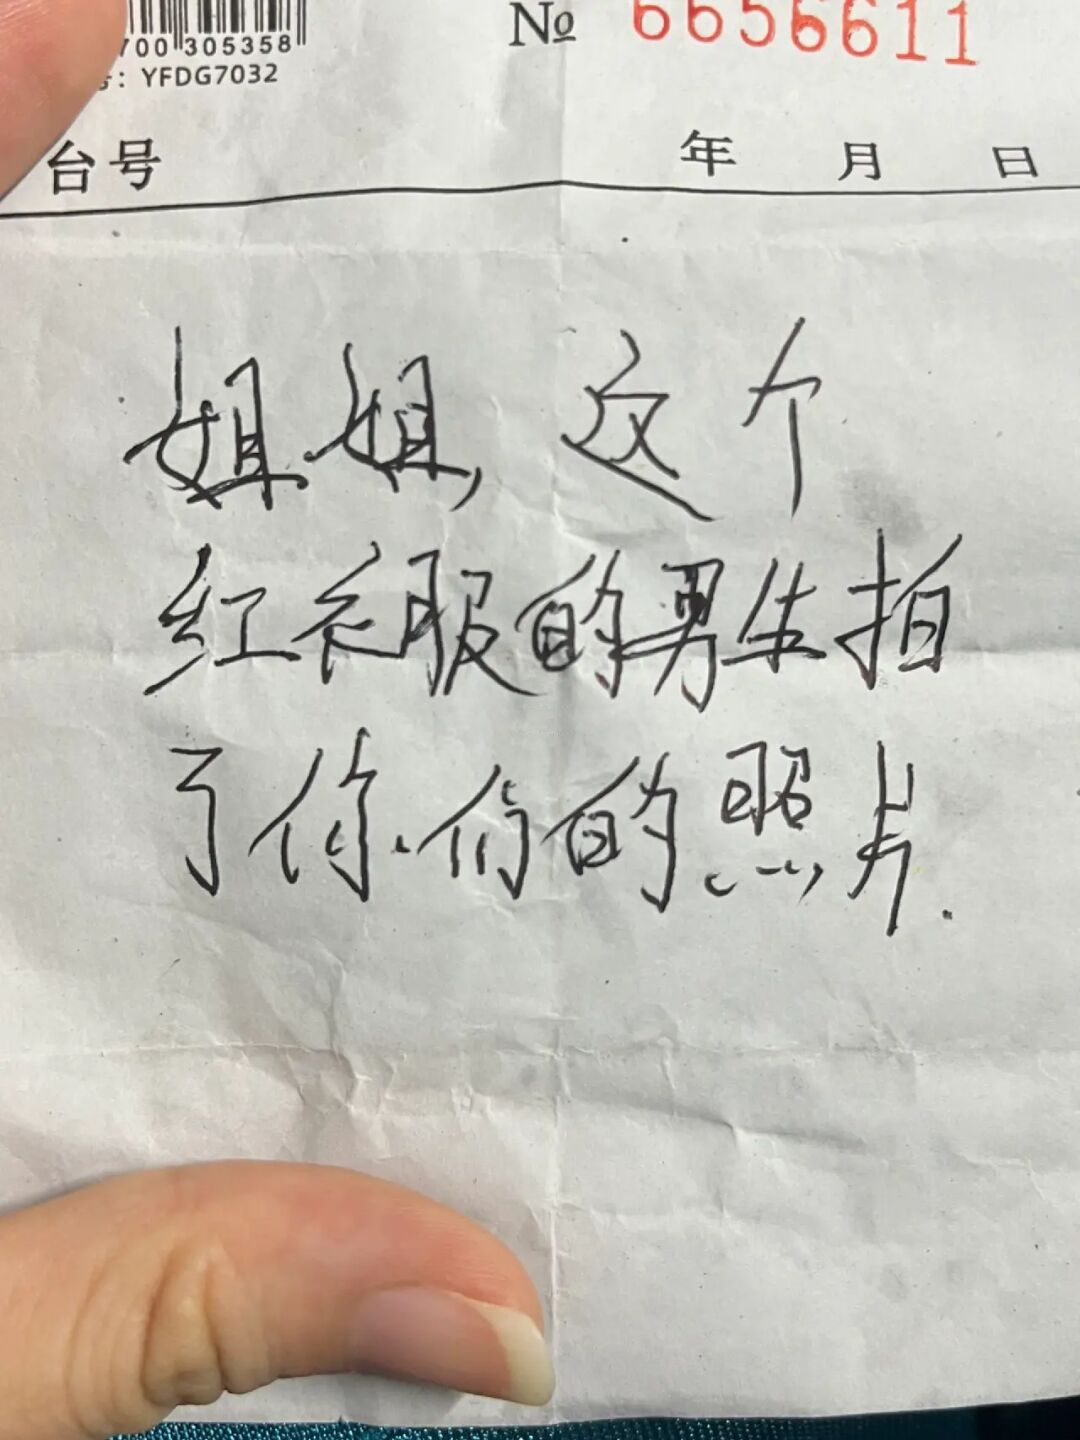 700 305358
: YFDG7032
№ 6656611
台号 年 月 日
姐姐,这个
红衣服的男生拍
了你们的照片.